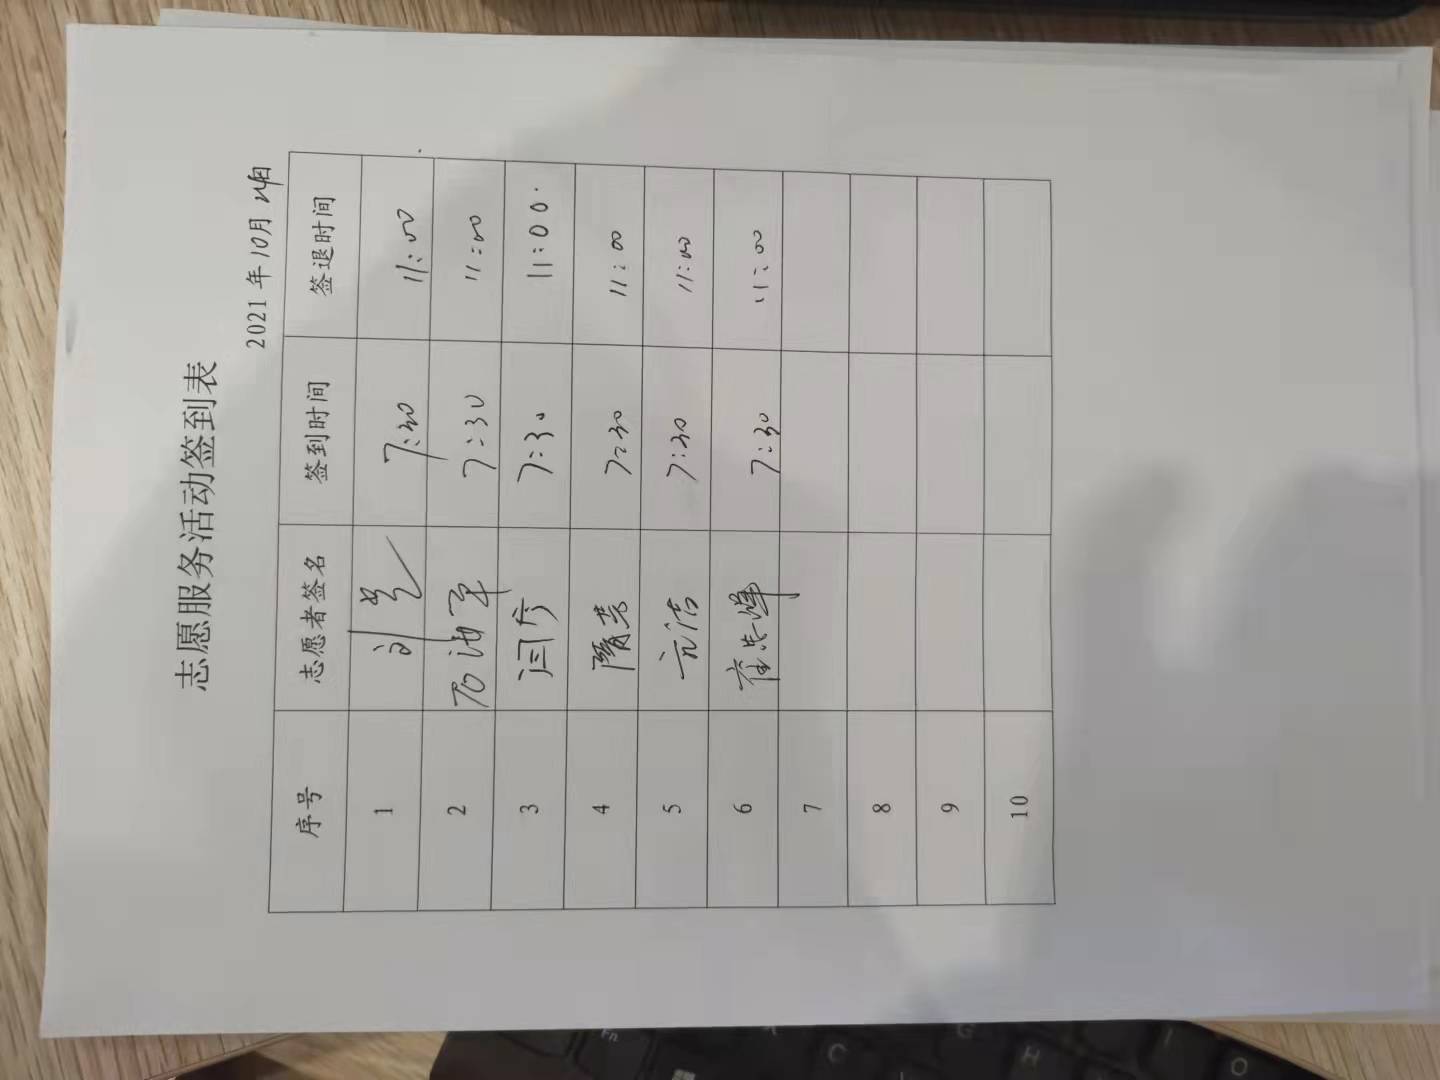 志愿服务活动签到表
2021年10月日
序号 志愿者签名 签到时间 签退时间
1 7:30 11:00
2 石海军 7:30 11:00
3 闫彦 7:30 11:00.
4 隋芳 7:30 11:00
5 亓洁 7:30 11:00
6 崔 7:30 11:00
7
8
9
10
Fn
C
G
H
I
O